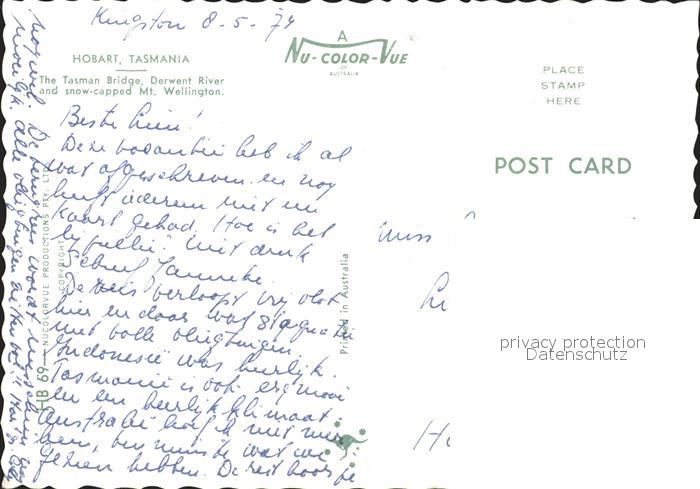 Kingston 8-5-74
HOBART, TASMANIA
The Tasman Bridge, Derwent River
and snow-capped Mt. Wellington.
A
NU-COLOR-VUE
OF
AUSTRALIA
PLACE
STAMP
HERE
POST CARD
Beste Lien!
Deze vacantie heb ik al
wat afgeschreven en nog
heeft iedereen niet een
kaart gehad. Hoe is het
bij jullie? Niet druk
Janneke.
De reis verloopt vrij vlot
hier en daar wat stagnatie
met volle vliegtuigen.
Indonesië was heerlijk.
Tasmanië is ook erg mooi
en een heerlijk klimaat.
Australië hoef ik niet meer
heen, ten minste wat we
gezien hebben. De rest hoor je
nog wel. De terugreis wordt
moeilijk. alle vliegtuigen
HB 69 — NUCOLORVUE PRODUCTIONS PTY. LTD.
COPYRIGHT
Printed in Australia
Miss
Li
Ho
privacy protection
Datenschutz